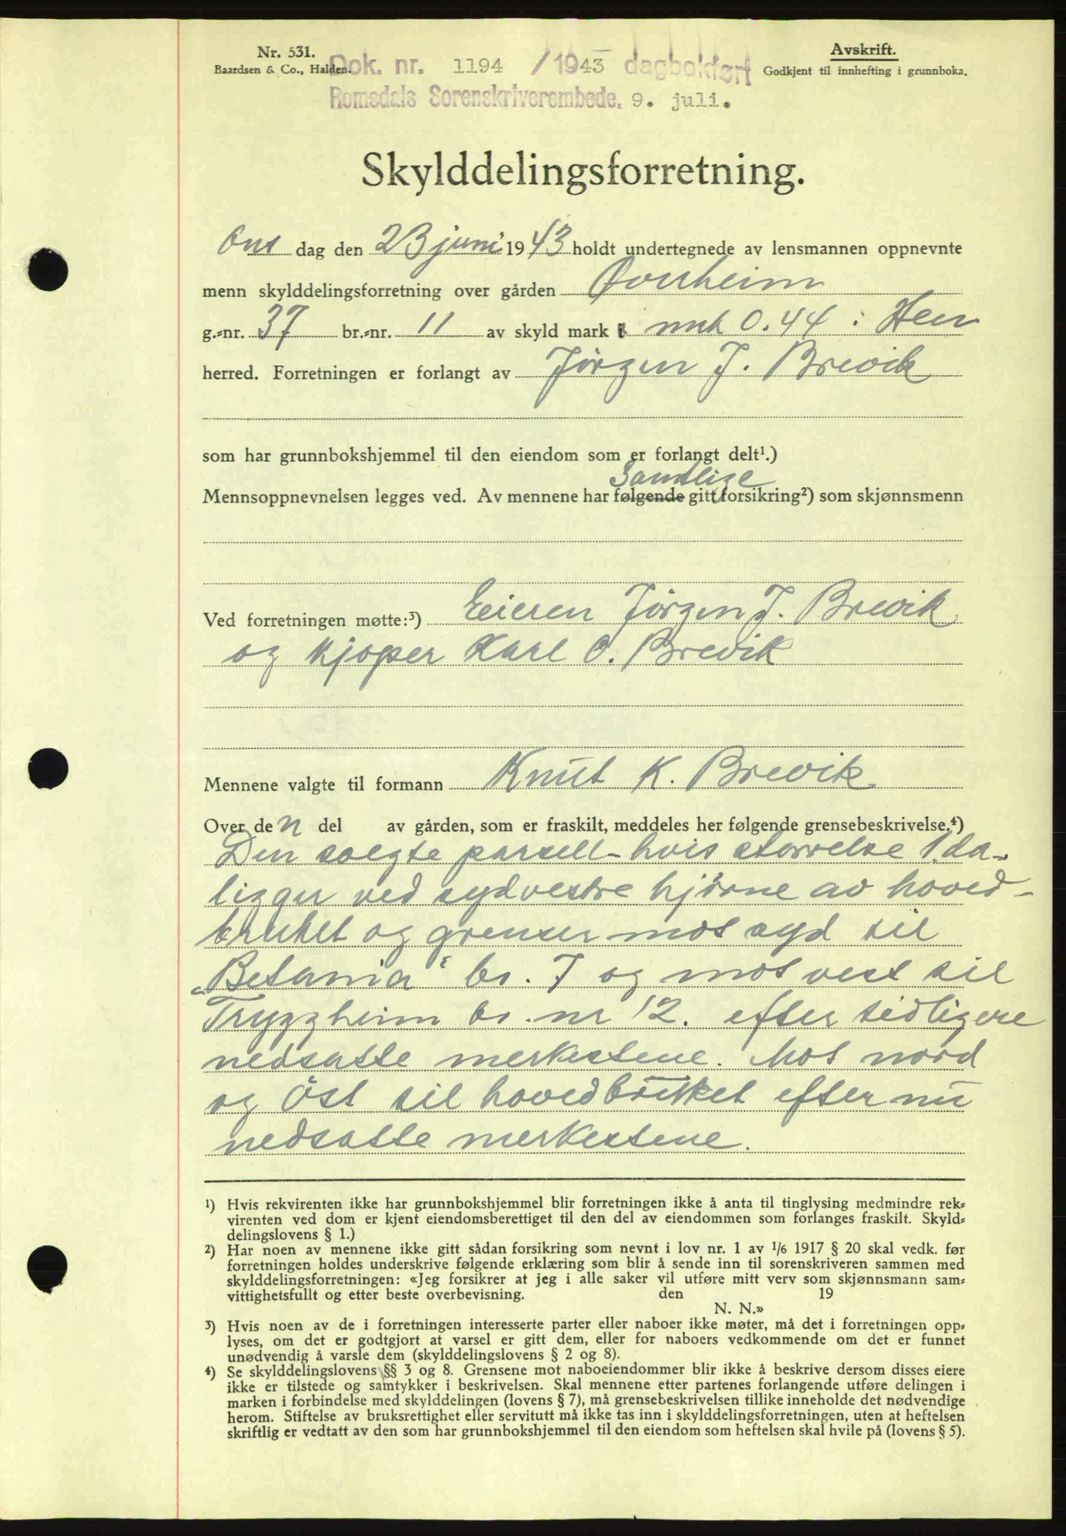 Nr. 531.
Baardsen & Co., Halden.
Dok. nr. 1194 /1943 dagbokført
Romsdals Sorenskriverembede. 9. juli.
Avskrift.
Godkjent til innhefting i grunnboka.
Skylddelingsforretning.
Ons dag den 23 juni 1943 holdt undertegnede av lensmannen oppnevnte
menn skylddelingsforretning over gården Øverheim
g.-nr. 37 br.-nr. 11 av skyld mark mrk 0.44 i Hen
herred. Forretningen er forlangt av Jørgen J. Brevik
som har grunnbokshjemmel til den eiendom som er forlangt delt¹.)
Samtlige
Mennsoppnevnelsen legges ved. Av mennene har følgende gitt forsikring²) som skjønnsmenn
Ved forretningen møtte:³) Eieren Jørgen J. Brevik
og kjøper Karl O. Brevik
Mennene valgte til formann Knut K. Brevik
Over den del av gården, som er fraskilt, meddeles her følgende grensebeskrivelse.⁴)
Den solgte parsell – hvis størrelse 1 da.
ligger ved sydvestre hjørne av hoved-
bruket og grenser mot syd til
"Betania" br. 7 og mot vest til
Tryggheim br. nr 12. efter tidligere
nedsatte merkestene. Mot nord
og Öst til hovedbruket efter nu
nedsatte merkestene.
¹) Hvis rekvirenten ikke har grunnbokshjemmel blir forretningen ikke å anta til tinglysing medmindre rek-
virenten ved dom er kjent eiendomsberettiget til den del av eiendommen som forlanges fraskilt. Skyld-
delingslovens § 1.)
²) Har noen av mennene ikke gitt sådan forsikring som nevnt i lov nr. 1 av 1/6 1917 § 20 skal vedk. før
forretningen holdes underskrive følgende erklæring som blir å sende inn til sorenskriveren sammen med
skylddelingsforretningen: «Jeg forsikrer at jeg i alle saker vil utføre mitt verv som skjønnsmann sam-
vittighetsfullt og etter beste overbevisning. den 19
N. N.»
³) Hvis noen av de i forretningen interesserte parter eller naboer ikke møter, må det i forretningen opp-
lyses, om det er godtgjort at varsel er gitt dem, eller for naboers vedkommende om det er funnet
unødvendig å varsle dem (skylddelingslovens § 2 og 8).
⁴) Se skylddelingslovens §§ 3 og 8. Grensene mot naboeiendommer blir ikke å beskrive dersom disses eiere
ikke er tilstede og samtykker i beskrivelsen. Skal mennene etter partenes forlangende utføre delingen i
marken i forbindelse med skylddelingen (lovens § 7), må grensebeskrivelsen tillike inneholde det nødvendige
herom. Stiftelse av bruksrettighet eller servitutt må ikke tas inn i skylddelingsforretningen, uten at heftelsen
skriftlig er vedtatt av den som har grunnbokshjemmel til den eiendom som heftelsen skal hvile på (lovens § 5).